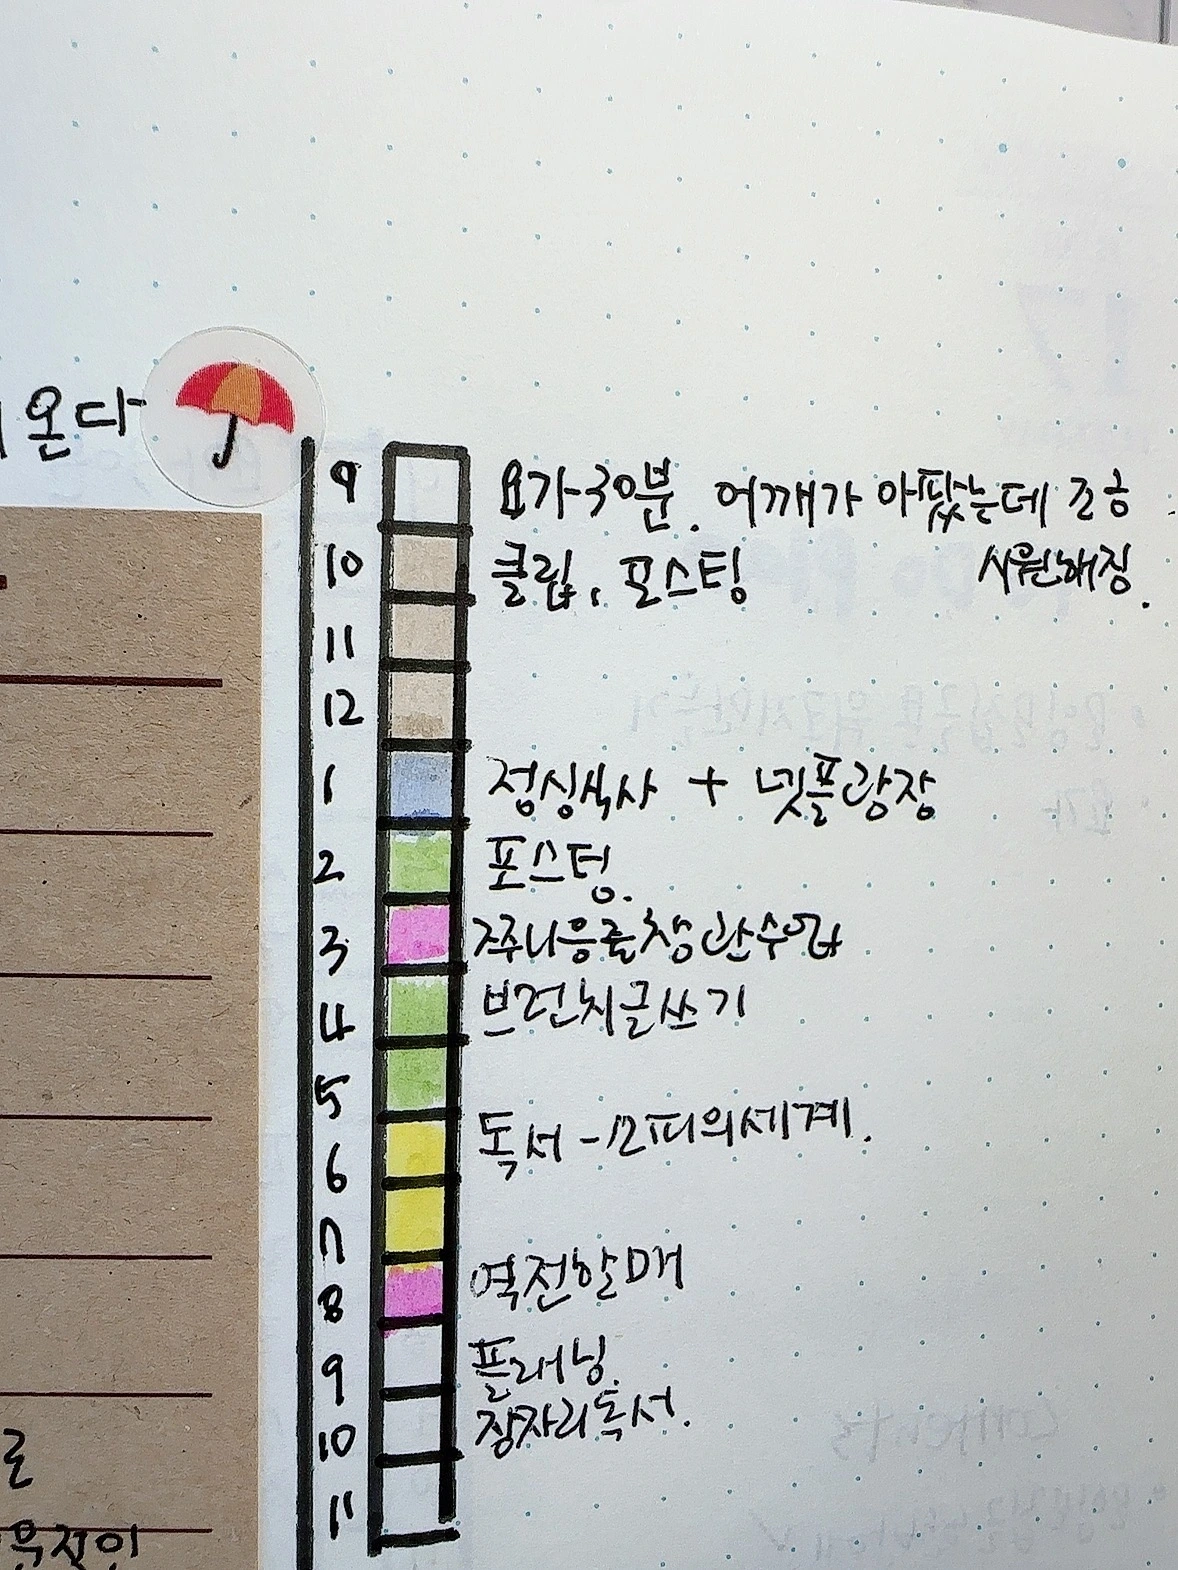 온다
9 요가-30분. 어깨가 아팠는데 조금
10 클립, 포스팅 시원해짐.
11
12
1 점심식사 + 넷플광장
2 포스팅.
3
4 브런치글쓰기
5
독서 - 소피의세계.
6
7
8 역전할매
9 플래닝
10 잠자리독서.
11